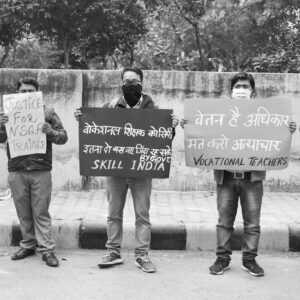 JUSTICE
FOR
NSQF
TRAINEE
वोकेशनल शिक्षक को सिर्फ
इतना दो
BY GOVT.
SKILL INDIA
वेतन है अधिकार
मत करो अत्याचार
VOCATIONAL TEACHERS